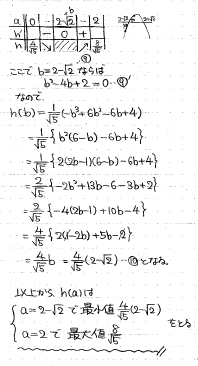 b
a 0 … 2-√2 … 2
h' - 0 +
h 4/√5 ↘ ↗ 8/√5
2-√2 2+√2
⑨
ここで b=2-√2 ならば
b²-4b+2=0 …⑨'
なので
h(b)=1/√5(-b³+6b²-6b+4)
=1/√5{b²(6-b)-6b+4}
=1/√5{2(2b-1)(6-b)-6b+4}
=2/√5{-2b²+13b-6-3b+2}
=2/√5{-4(2b-1)+10b-4}
=4/√5{2(1-2b)+5b-2}
=4/√5 b =4/√5(2-√2) …⑩となる。
以上から h(a)は
a=2-√2で 最小値 4/√5(2-√2)
a=2で 最大値 8/√5
をとる